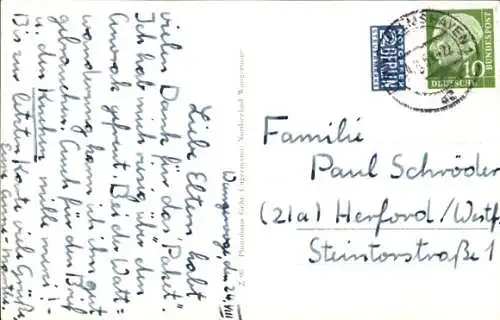 Wangerooge, den 24. VIII
Liebe Eltern, habt
vielen Dank für das Paket.
Ich hab mich riesig über den
Anorak gefreut. Bei der Watt=
wanderung kann ich ihn gut
gebrauchen. Auch für den Brief
u. den Kuchen mille merci!-
Bis zur letzten Karte viele Grüße
Eure Anne-
Photohaus Gebr. Nordseebad Wangerooge
NOTOPFER
2 BERLIN
STEUERMARKE
DEUTSCHE
BUNDESPOST
10
Familie
Paul Schröder
(21a) Herford/Westf
Steintorstraße 1